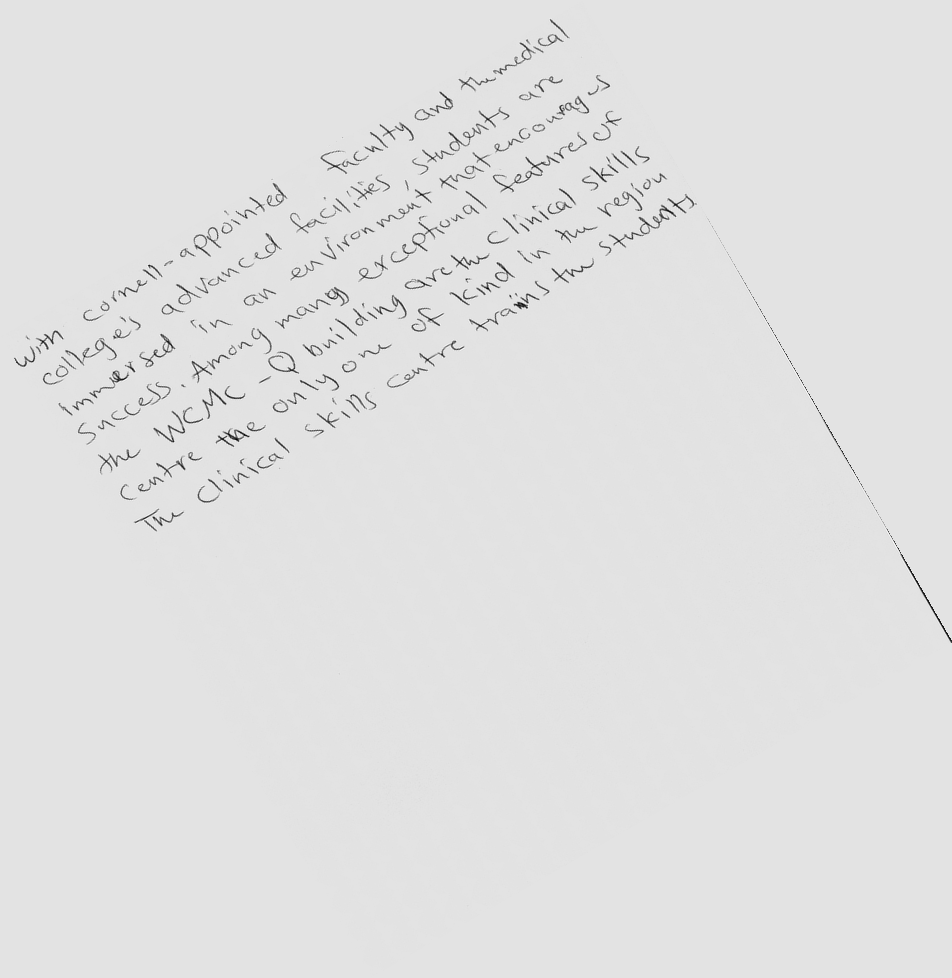 with cornell-appointed faculty and the medical
college's advanced facilities, students are
immersed in an environment that encourages
success. Among many exceptional features of
the WCMC-Q building are the clinical skills
centre the only one of kind in the region
The clinical skills centre trains the students